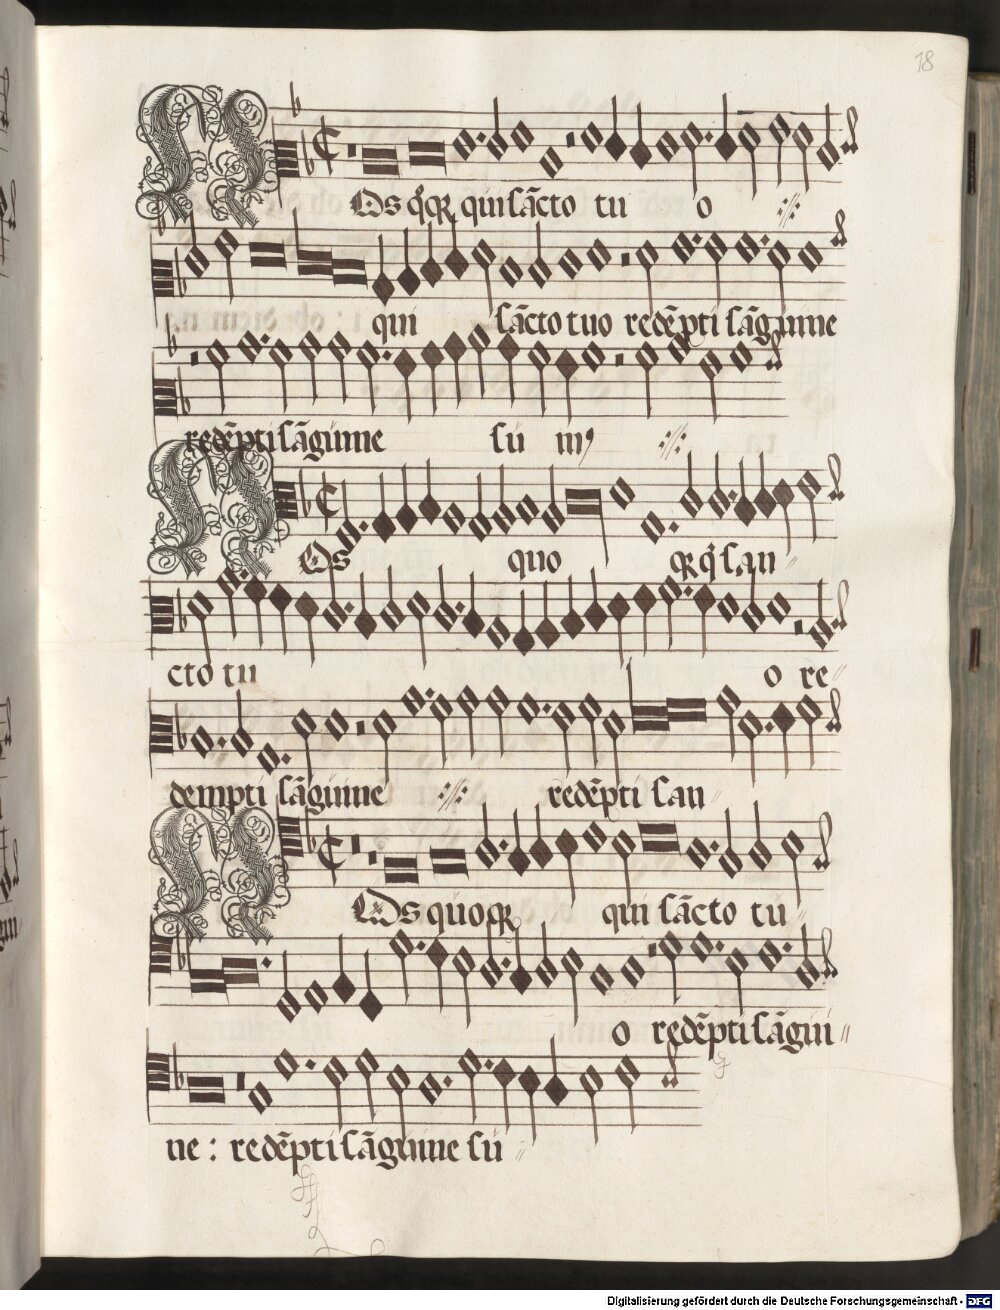 18
NOs qq̃ꝫ qui sãcto tu o
qui sãcto tuo redẽpti sãguine
redẽpti sãguine su mꝰ
NOs quo qꝫ q̇ san
cto tu o re
dempti sãguine redẽpti san
NOs quoqꝫ qui sãcto tu
o redẽpti sãgui
ne : redẽpti sãguine su
Digitalisierung gefördert durch die Deutsche Forschungsgemeinschaft - DFG